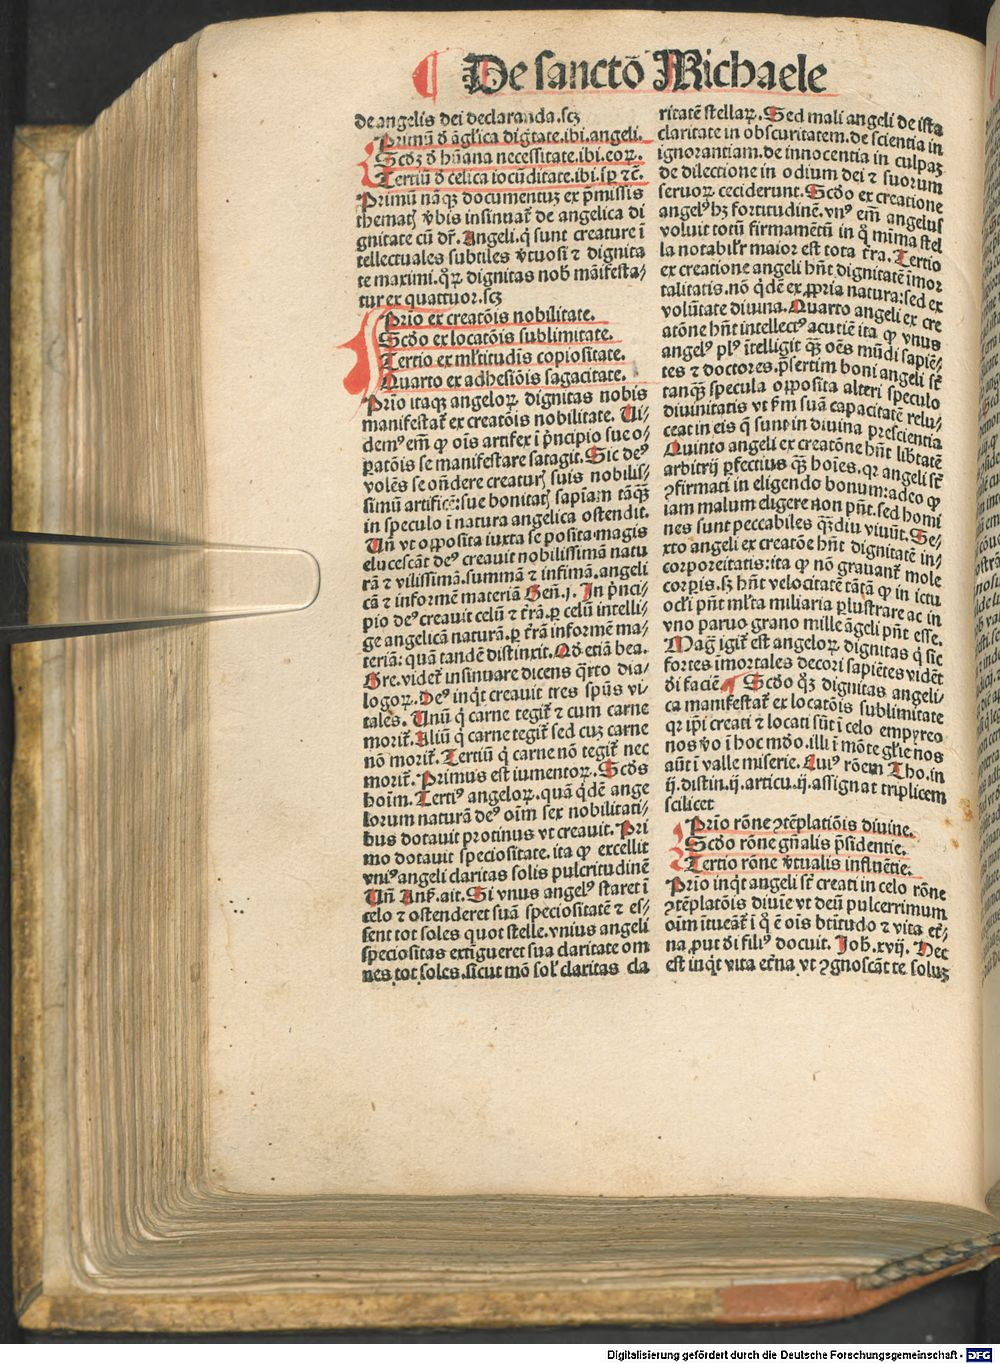 De sanctō Michaele
de angelis dei declaranda.scꝫ
Primū ꝺ āgl'ica diḡtate.ibi.angeli.
Scḋꝫ ꝺ hūana necessitate.ibi.eoꝝ.
Tertiū ꝺ celica iocūditate.ibi.sꝑ ⁊c̄.
Primū nāqꝫ documentuꝫ ex p̄missis
themat̄ v̄bis insinuat̄ de angelica di
gnitate cū dr̄. Angeli.q̇ sunt creature ī
tellectuales subtiles v̄tuosi ⁊ dignita
te maximi.q̊ꝝ dignitas nob̄ māifesta⸗
tur ex quattuor.scꝫ
Prīo ex creatōis nobilitate.
Scḋo ex locatōis sublimitate.
Tertio ex ml̄titudīs copiositate.
Quarto ex adhesiōis sagacitate.
Prīo itaqꝫ angeloꝝ dignitas nobis
manifestat̄ ex creatōis nobilitate. Ui⸗
demꝰ em̄ ꝙ ois artifex ī p̄ncipio sue o⸗
ꝑatōis se manifestare satagit. Sic deꝰ
volēs se on̄dere creatur̄ suis nobilis⸗
simū artificē:sue bonitat̄ sapīam tāqꝫ
in speculo ī natura angelica ostendit.
Un̄ vt opposita iuxta se posita magis
elucescāt deꝰ creauit nobilissimā natu
rā ⁊ vilissimā.summā ⁊ infimā.angeli
cā ⁊ informē materiā Gen̄.j. In p̄nci⸗
pio deꝰ creauit celū ⁊ t̄rā.ꝑ celū intelli⸗
ge angelicā naturā.ꝑ t̄rā informē ma⸗
teriā: quā tandē distinxit. Qḋ etiā bea.
Gre.videt̄ insinuare dicens q̄rto dia⸗
logoꝝ. Deꝰ inq̇t creauit tres sp̄us vi⸗
tales. Unū q̇ carne tegit̄ ⁊ cum carne
morit̄. Aliū q̇ carne tegit̄ sed cuꝫ carne
nō morit̄. Tertiū q̇ carne nō tegit̄ nec
morit̄. Primus est iumentoꝝ. Scḋs
hoīm. Tertiꝰ angeloꝝ.quā q̇dē ange
lorum naturā deꝰ oīm sex nobilitati⸗
bus dotauit protinus vt creauit. Pri
mo dotauit speciositate.ita ꝙ excellit
vniꝰ angeli claritas solis pulcritudinē
Un̄ Ans̄.ait. Si vnus angelꝰ staret ī
celo ⁊ ostenderet suā speciositatē ⁊ es⸗
sent tot soles quot stelle.vnius angeli
speciositas extīgueret sua claritate om
nes tot soles.sicut mō sol' claritas cla
ritatē stellaꝝ. Sed mali angeli de ista
claritate in obscuritatem.de scientia in
ignorantiam.de innocentia in culpaꝫ
de dilectione in odium dei ⁊ suorum
seruoꝝ ceciderunt. Scḋo ex creatione
angelꝰ hꝫ fortitudinē. vnꝰ em̄ angelus
voluit totū firmamētū in q̊ mīma stel
la notabil'r maior est tota t̄ra. Tertio
ex creatione angeli hn̄t dignitatē īmor
talitatis.nō q̇dē ex ꝓpria natura:sed ex
volūtate diuina. Quarto angeli ex cre
atōne hn̄t intellectꝰ acutiē ita ꝙ vnus
angelꝰ plꝰ ītelligit qꝫ oēs mūdi sapiē⸗
tes ⁊ doctores.p̄sertim boni angeli st̄
tanqꝫ specula opposita alteri speculo
diuinitatis vt ẜm suā capacitatē relu⸗
ceat in eis q̄ sunt in diuina prescientia
Quinto angeli ex creatōne hn̄t lib̄tatē
arbitrij ꝑfectius qꝫ hoīes. qꝛ angeli st̄
ꝯfirmati in eligendo bonum:adeo ꝙ
iam malum eligere non pn̄t. sed homi
nes sunt peccabiles qꝫdiu viuūt. Se⸗
xto angeli ex creatōe hn̄t dignitatē in⸗
corporeitatis:ita ꝙ nō grauant̄ mole
corꝑis.sꝫ hn̄t velocitatē tātā ꝙ in ictu
ocl'i pn̄t ml̄ta miliaria ꝑlustrare ac in
vno paruo grano mille āgeli pn̄t esse.
Maḡ igit̄ est angeloꝝ dignitas q̇ sic
fortes īmortales decori sapiētes vidēt
ḋi faciē. Scḋo q̊ꝫ dignitas angeli⸗
ca manifestat̄ ex locatōis sublimitate
qꝛ ip̄i creati ⁊ locati sūt ī celo empyreo
nos v̄o ī hoc mḋo.illi ī mōte gl'ie nos
aūt ī valle miserie. Cuiꝰ rōem Tho.in
ij.distin.ij.articu.ij.assignat triplicem
scilicet
Prīo rōne ꝯtēplatiōis diuine.
Scḋo rōne gn̄alis p̄sidentie.
Tertio rōne v̄tualis influētie.
Prīo inq̇t angeli st̄ creati in celo rōne
ꝯtēplatōis diuīe vt deū pulcerrimum
oīm ītueāt̄ ī q̊ ē ois bt̄itudo ⁊ vita et̄⸗
na.put ḋi filiꝰ docuit. Joh̄.xvij. Hec
est inq̇t vita et̄na vt ꝯgnoscāt te soluꝫ
Digitalisierung gefördert durch die Deutsche Forschungsgemeinschaft - DFG